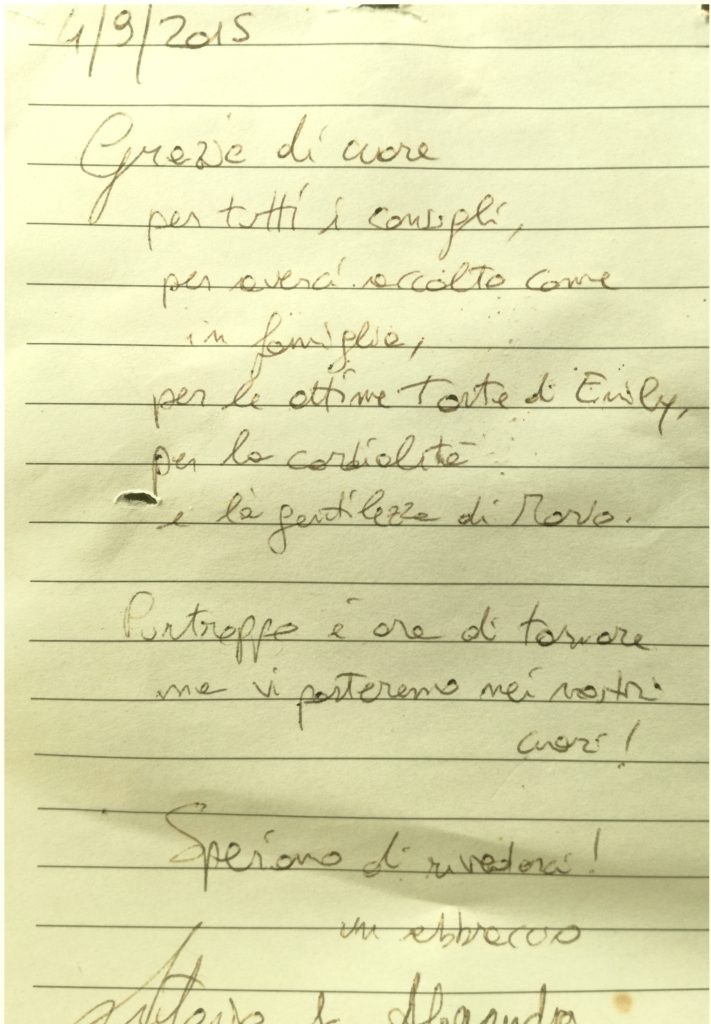 4/9/2015
Grazie di cuore
per tutti i consigli,
per averci accolto come
in famiglia,
per le ottime torte di Emily,
per la cordialità
e la gentilezza di Mario.
Purtroppo è ora di tornare
ma vi porteremo nei nostri
cuori!
Speriamo di rivederci!
un abbraccio
&